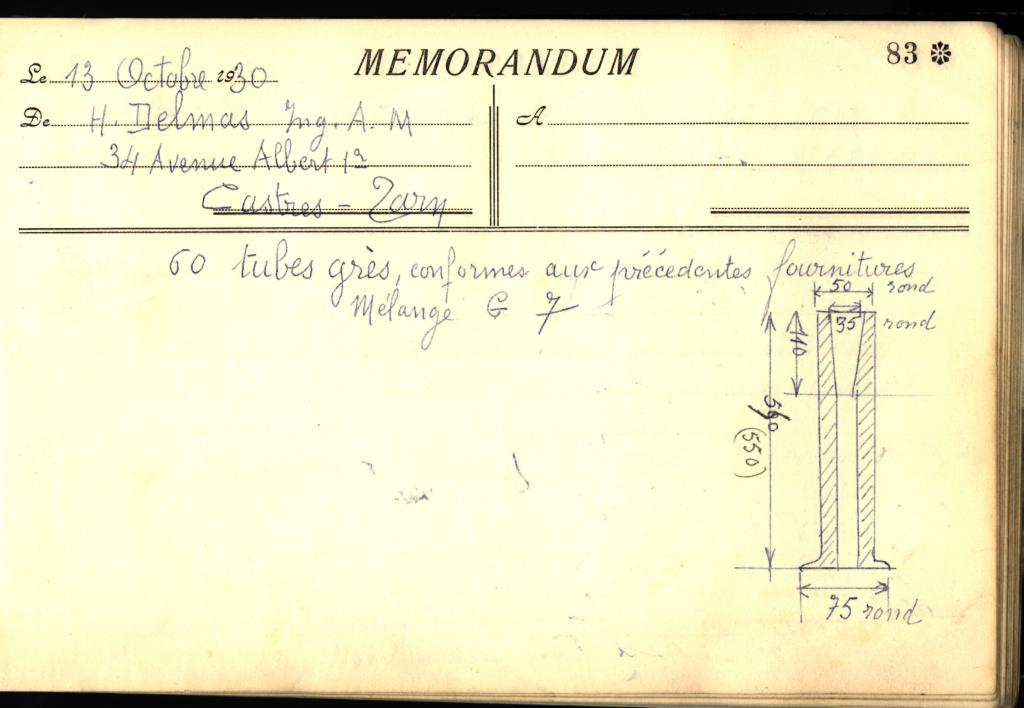 MEMORANDUM
83
Le 13 Octobre 1930
De H. Delmas Ing. A. M
A
34 Avenue Albert 1er
Castres - Tarn
60 tubes grès, conformes aux précédentes fournitures
Mélange G 7
50 rond
35 rond
110
(550)
75 rond